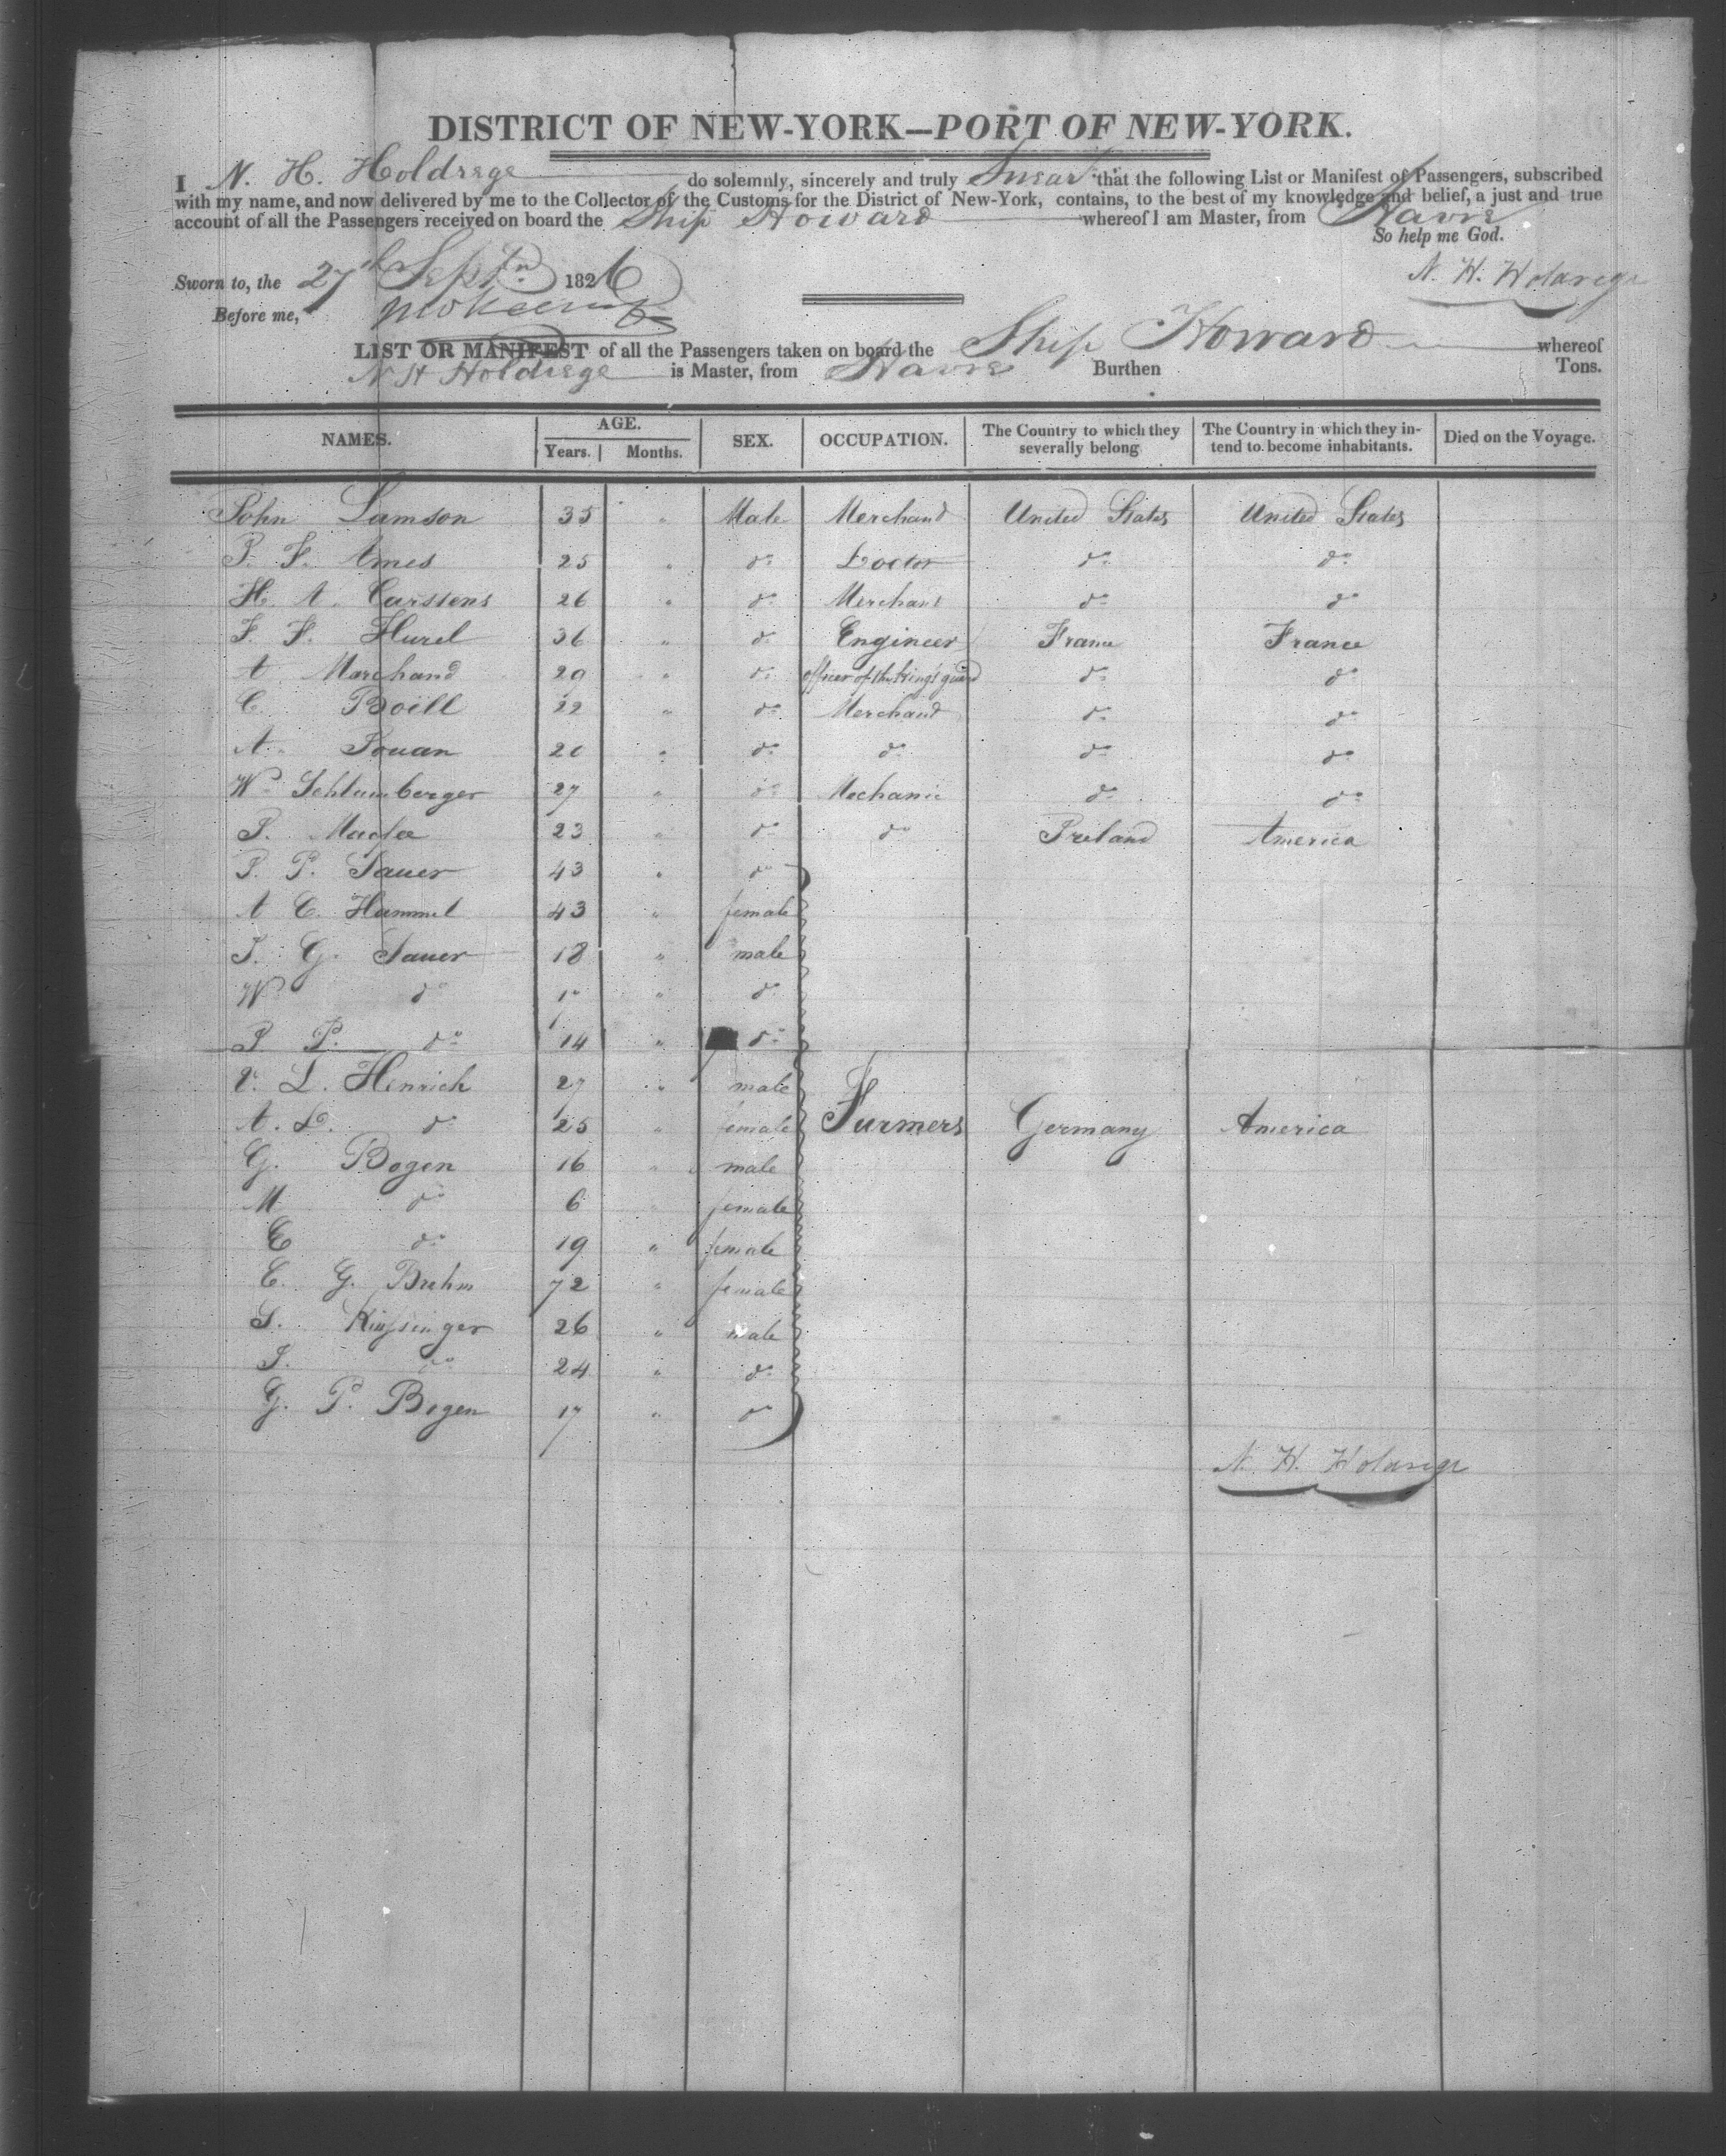 DISTRICT OF NEW-YORK—PORT OF NEW-YORK.
I N. H. Holdrege do solemnly, sincerely and truly Swear that the following List or Manifest of Passengers, subscribed
with my name, and now delivered by me to the Collector of the Customs for the District of New-York, contains, to the best of my knowledge and belief, a just and true
account of all the Passengers received on board the Ship Howard whereof I am Master, from Havre
So help me God.
Sworn to, the 27th Septr 1826 N. H. Holdrege
Before me,
LIST OR MANIFEST of all the Passengers taken on board the Ship Howard whereof
N H Holdrege is Master, from Havre Burthen Tons.
NAMES. AGE. Years. Months. SEX. OCCUPATION. The Country to which they severally belong The Country in which they intend to become inhabitants. Died on the Voyage.
John Lamson 35 " Male Merchand United States United States
P. F. Ames 25 " do Doctor do do
H. A. Carstens 26 " do Merchant do do
F. F. Hurel 36 " do Engineer France France
A Marchand 29 " do officer of the King's guard do do
C Boill 22 " do Merchand do do
A. Jouan 20 " do do do do
Wm Schlumberger 27 " do Mechanic do do
P. Magee 23 " do do Ireland America
J. P. Sauer 43 " do
A C. Hammel 43 " female
J. G. Sauer 18 " male
W do 17 " do
J P. do 14 " do
V. L. Henrich 27 " male
A. L. do 25 " female Farmers Germany America
G. Bogen 16 " male
M do 6 " female
C do 19 " female
E. G. Brehm 72 " female
S. Kissinger 26 " male
J. do 24 " do
G. P. Bogen 17 " do
N. H. Holdrege